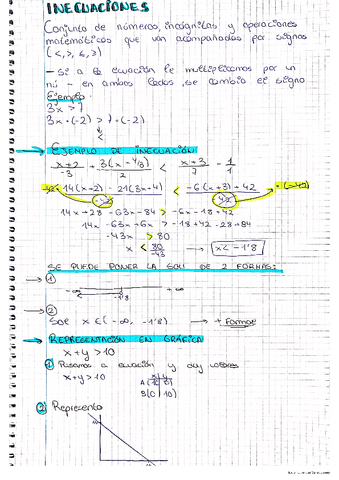 INECUACIONES
Conjunto de números, incógnitas y operaciones
matemáticas que van acompañadas por signos
(<, >, ≤, ≥)
- Si a la ecuación le multiplicamos por un
nº - en ambos lados, se cambia el signo
Ejemplo
3x > 7
3x·(-2) > 7·(-2)
<
→ EJEMPLO DE INECUACIÓN
14(x+2) - 21(3x+4) < -6(x+3)+42 ·(-42)
14x+28 - 63x-84 > -6x-18+42
14x - 63x + 6x > -18+42-28+84
-43x > 80
→ x < -1'8
SE PUEDE PONER LA SOL DE 2 FORMAS:
→ ①
-∞ -1'8 +∞
→ ②
Sol x ∈ (-∞, -1'8) → + Formal
→ REPRESENTACIÓN EN GRÁFICA
x+y > 10
① Pasamos a ecuación y doy valores
x+y > 10
② Represento
10